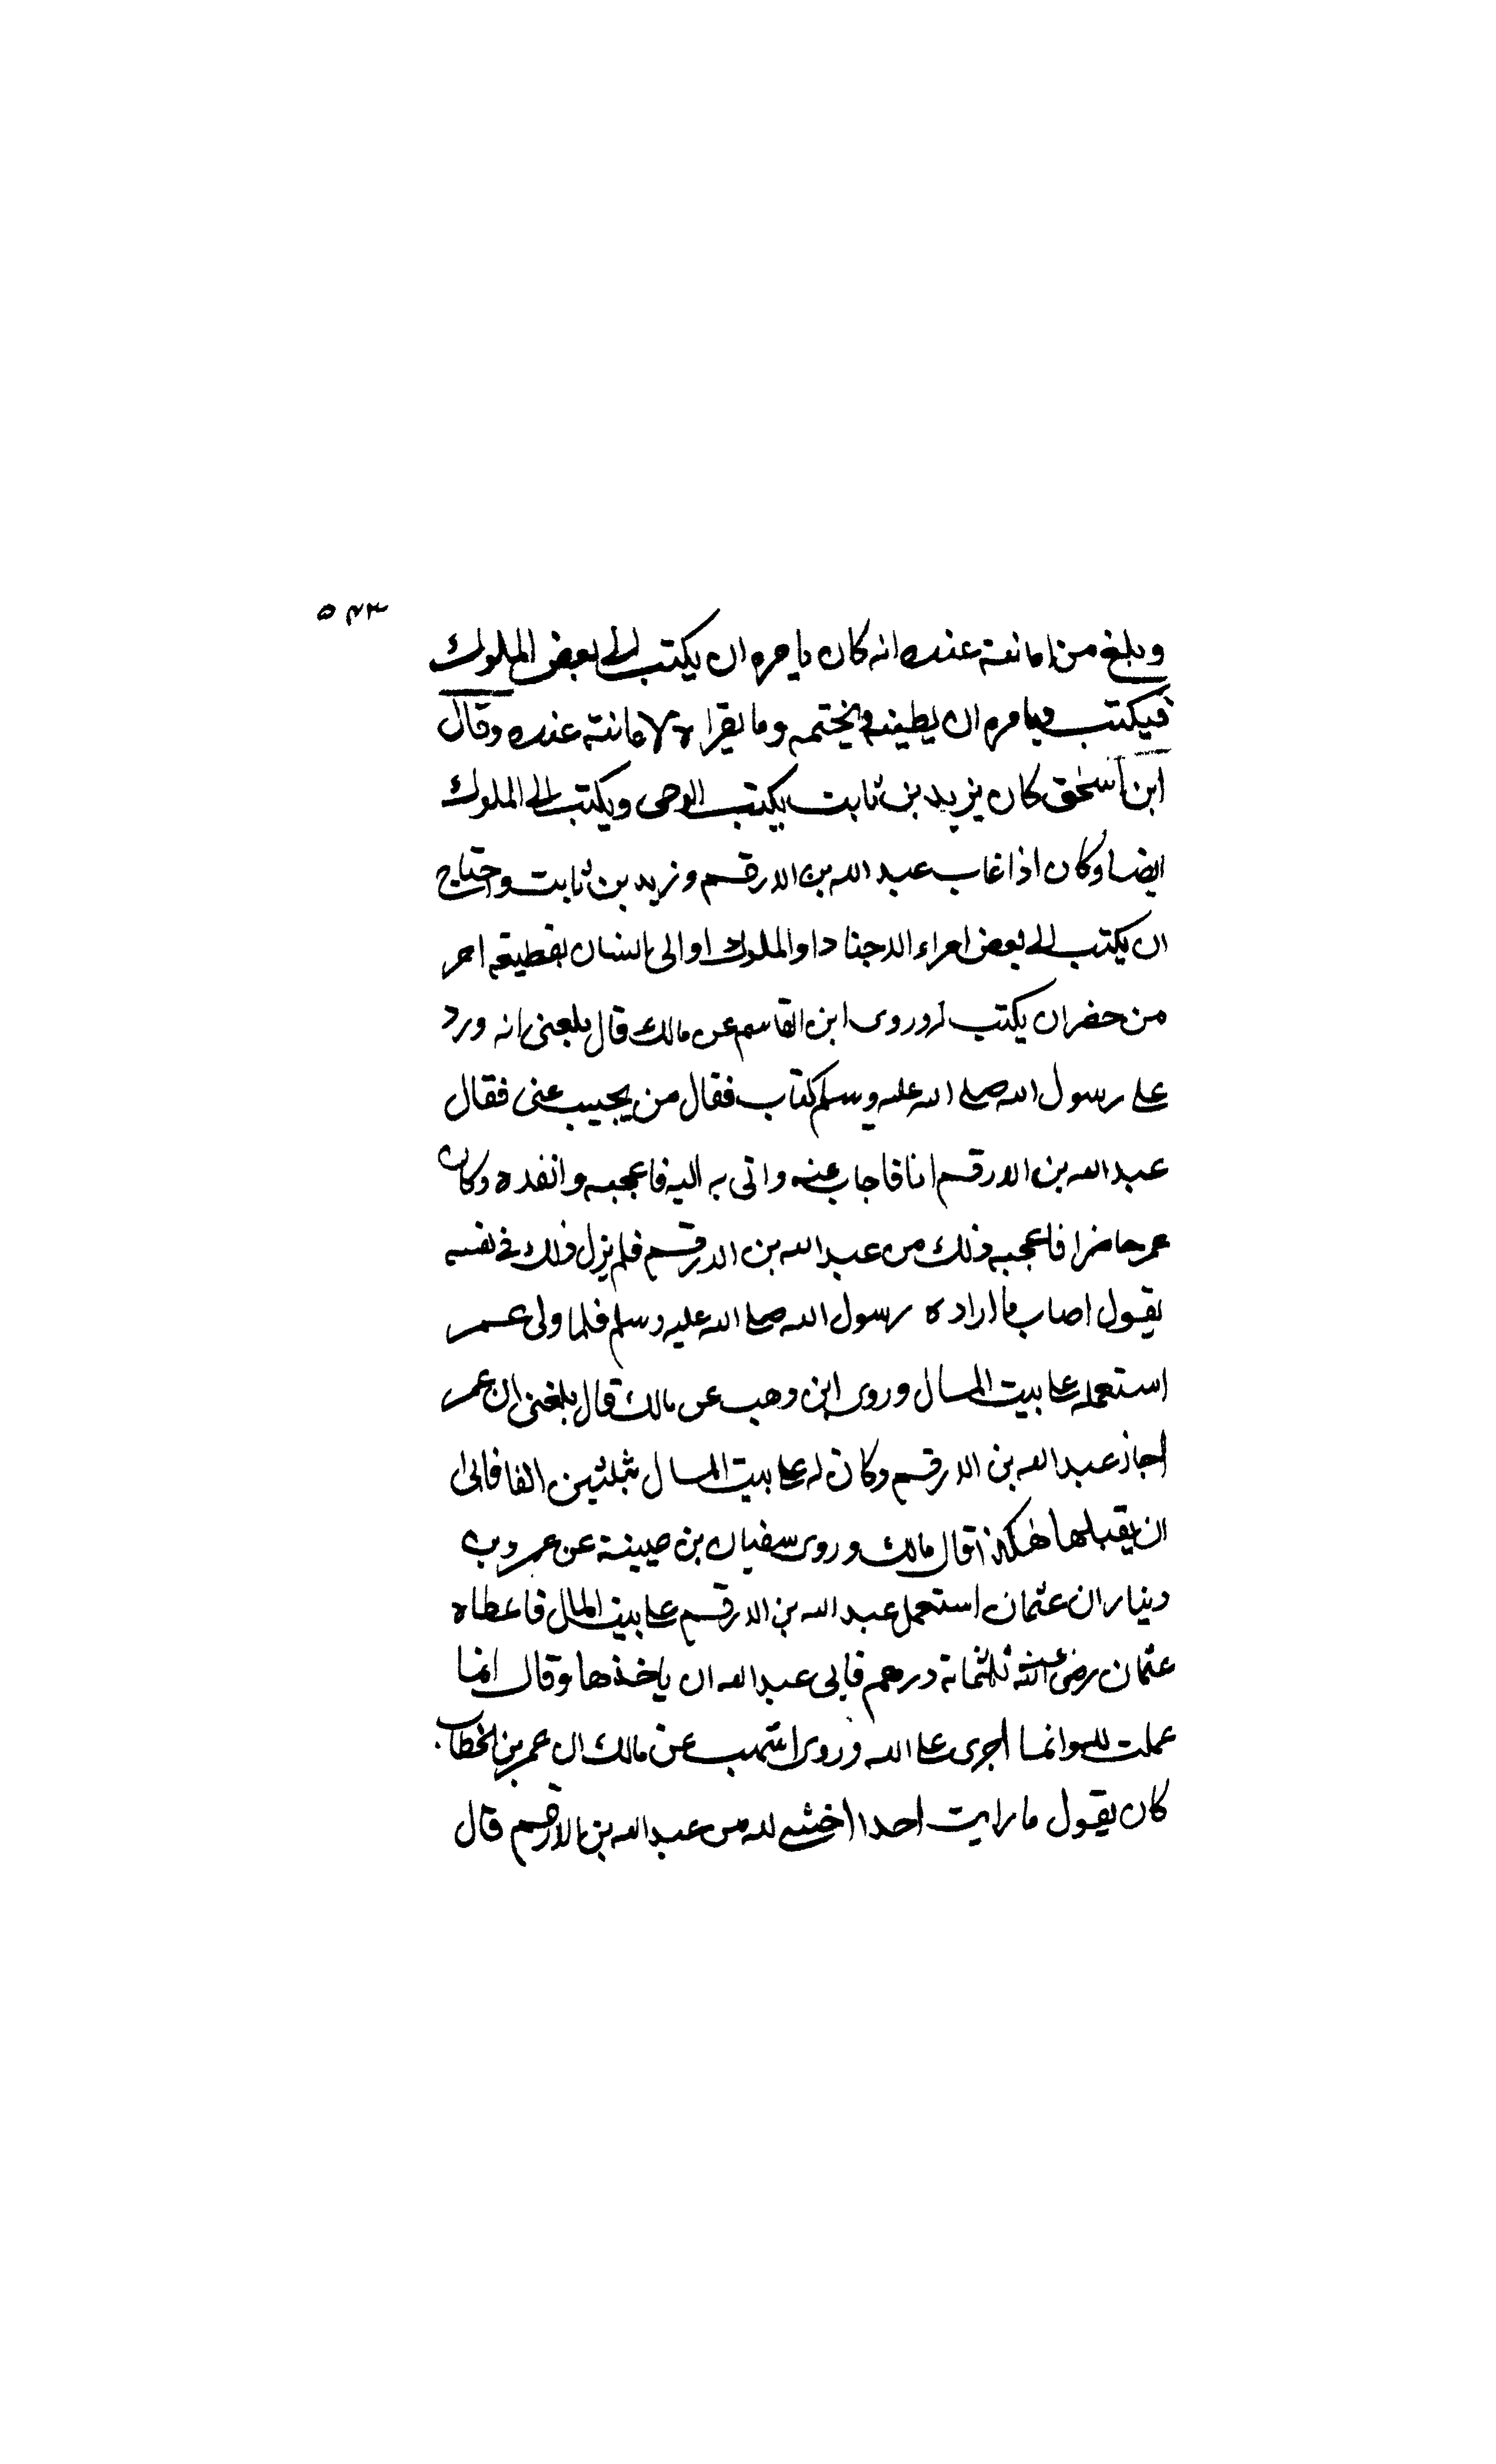 ٥٤٣
وبلغ من امانته عنده انه كان يامره ان يكتب الى بعض الملوك
فيكتب ويامره ان يطينه ويختمه وما يقراه لامانته عنده وقال
ابن اسحٰق كان زيد بن ثابت يكتب الوحى ويكتب الى الملوك
ايضا وكان اذا غاب عبد الله بن الارقم وزيد بن ثابت واحتاج
ان يكتب الى بعض امراء الاجناد او الملوك او الى انسان بقطيعة امر
من حضر ان يكتب له وروى ابن القاسم عن مالك قال بلغنى انه ورد
على رسول الله صلى الله عليه وسلم كتاب فقال من يجيب عنى فقال
عبد الله بن الارقم انا فاجاب عنه واتى به اليه فاعجبه وانفده وكان
عمر حاضرا فاعجبه ذلك من عبد الله بن الارقم فلم يزل ذلك فى نفسه
يقول اصاب ما اراده رسول الله صلى الله عليه وسلم فلما ولى عمر
استعمله على بيت المال وروى ابن وهب عن مالك قال بلغنى ان عمر
اجاز عبد الله بن الارقم وكان له على بيت المال بثلثين الفا فابى
ان يقبلها هٰكذا قال مالك وروى سفيان بن عيينة عن عمرو بن
دينار ان عثمان استعمل عبد الله بن الارقم على بيت المال فاعطاه
عثمان رضى الله عنه ثلثمائة درهم فابى عبد الله ان ياخذها وقال انما
عملت لله وانما اجرى على الله وروى اشهب عن مالك ان عمر بن الخطاب
كان يقول ما رايت احدا اخشى لله من عبد الله بن الارقم قال